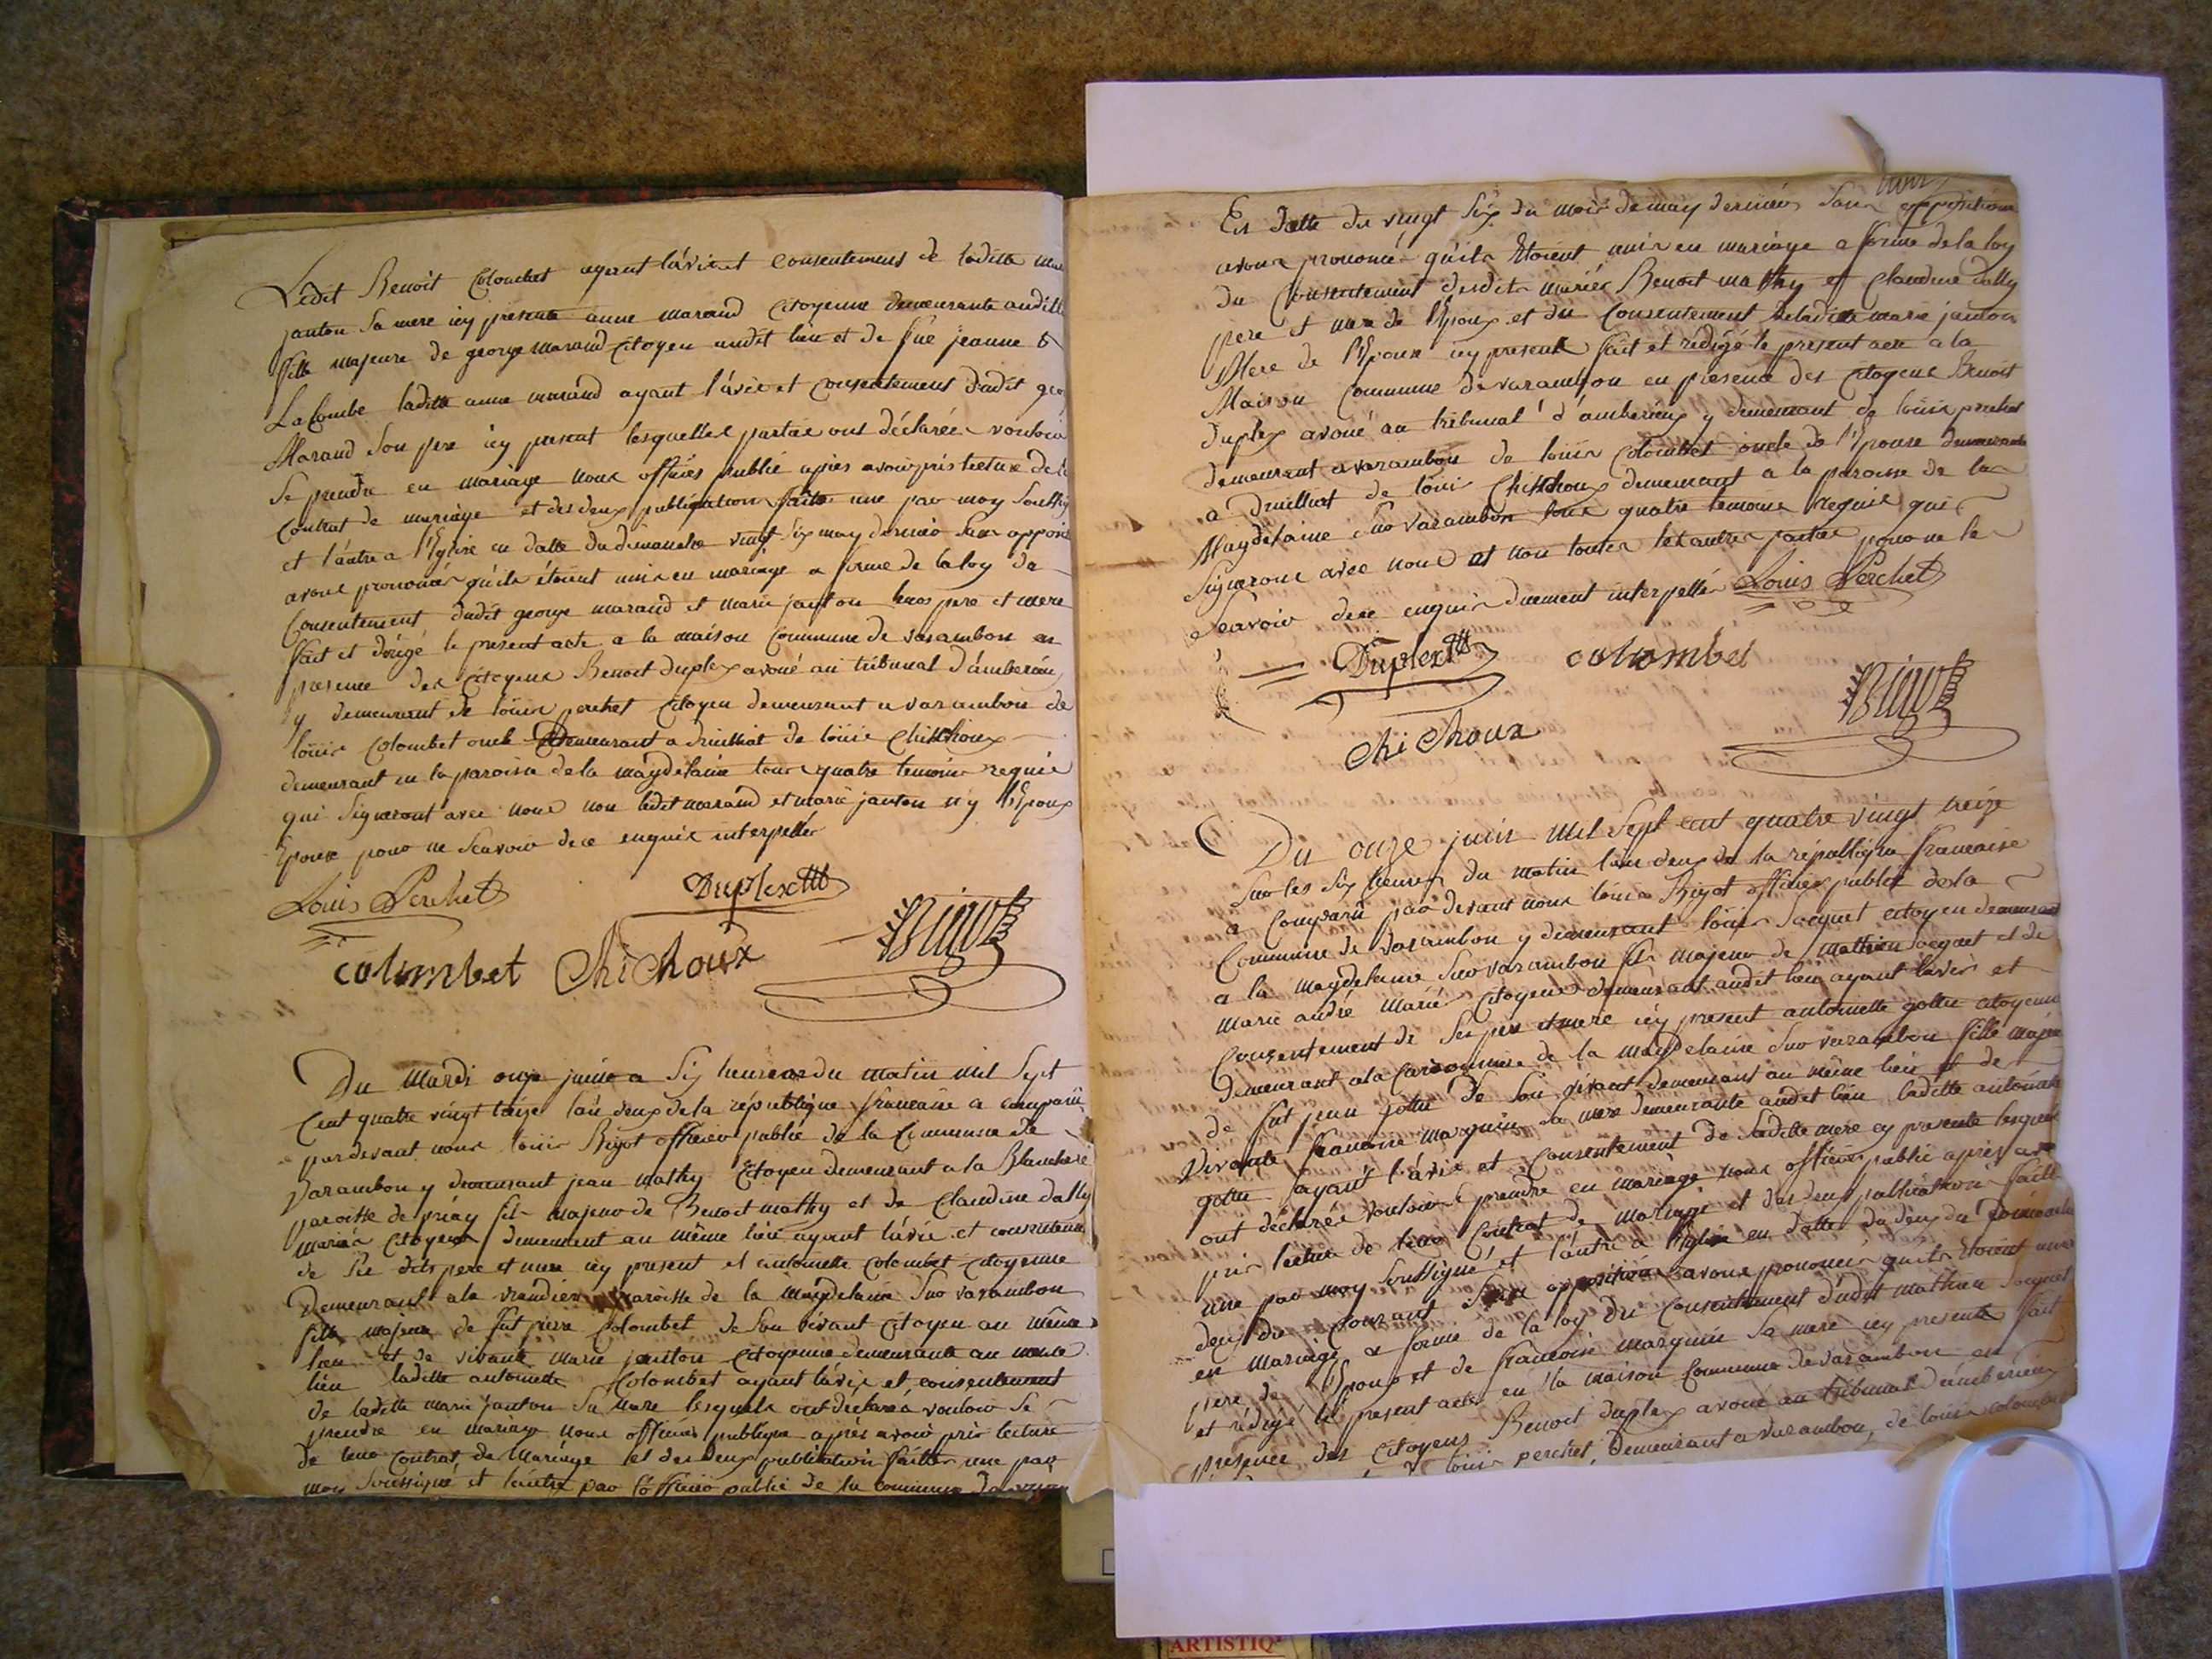 Ledit Benoit Colombet ayant l'avis et consentement de laditte marie
janton sa mere icy presente anne marand citoyenne demeurante audit
fille majeure de george marand citoyen audit lieu et de fue jeanne
La Combe laditte anne marand ayant l'avis et consentement dudit
Marand son pere icy present lesquelles parties ont déclarée vouloir
se prendre en mariage nous officier public après avoir pris lecture de
contrat de mariage et des deux publications faites une par moy
et l'autre a l'Eglise en datte du dimanche vingt six may dernier sans
avons prononcés qu'ils étoient unis en mariage a forme de la loy du
Consentement dudit george marand et marie janton leurs pere et mere
fait et dirigé le present acte a la maison Commune de varambon en
presence des citoyens Benoit duplex avoué au tribunal d'amberieu
y demeurant de loüis perchet citoyen demeurant a varambon de
loüis Colombet oncle demeurant a druilliat de loüis Chichoux
demeurant en la paroisse de la magdelaine tous quatre temoins requis
qui signeront avec nous non ledit marand et marie janton n'y l'Epoux
Epouse pour ne scavoir de ce enquis interpellés
Louis Perchet Duplex
colombet Chichoux Bigot
Du Mardi onze juin a six heures du matin mil sept
Cent quatre vingt treize l'an deux de la république francaise a comparu
pardevant nous loüis Bigot officier public de la Commune de
varambon y demeurant jean mathy Citoyen demeurant a la Blanchere
paroisse de priay fils majeur de Benoit mathy et de Claudine dally
mariés citoyens demeurant au même lieu ayant l'avis et consentement
de ses dits pere et mere icy present et antoinette colombet citoyenne
Demeurant a la paroisse de la magdelaine sur varambon
fille majeure de fut pierre Colombet de son vivant Citoyen au même
lieu et de vivante Marie janton Citoyenne demeurante au meme
lieu laditte antoinette Colombet ayant l'avis et consentement
de laditte marie janton sa mere lesquels ont déclarés vouloir se
prendre en mariage nous officier publique après avoir pris lecture
de leur contrat de Mariage et des deux publications faittes une par
moy soussigné et l'autre par l'officier public de la commune de
En datte du vingt six du mois de may dernier sans opposition
avons prononcé qu'ils Etoient unis en mariage a forme de la loy
du Consentement desdits mariés Benoit mathy et Claudine dally
pere et mere de l'Epoux et du Consentement de laditte marie janton
Mere de l'Epouse icy presente fait et rédigé le present acte a la
Maison Commune de varambon en presence des citoyens Benoit
duplex avoué au tribunal d'amberieux y demeurant de loüis perchet
demeurant a varambon de loüis Colombet oncle de l'Epouse demeurant
a druilliat de loüis Chichoux demeurant a la paroisse de la
Magdelaine sur varambon tous quatre temoins requis qui
signerons avec nous et non toutes les autres parties pour ne le
Scavoir de ce enquis duement interpellés Louis Perchet
Duplex colombet
Chichoux Bigot
Du onze juin mil sept cent quatre vingt treize
sur les six heures du matin l'an deux de la république francaise
a Comparu par devant nous loüis Bigot officier public de la
Commune de varambon y demeurant loüis Socquet citoyen demeurant
a la magdelaine sur varambon fils majeur de Mathieu Socquet et de
Marie andré mariés Citoyens demeurant audit lieu ayant l'avis et
Consentement de ses pere et mere icy present antoinette goltu citoyenne
demeurant a la de la magdelaine sur varambon fille majeure
de fut jean goltu de son vivant demeurant au même lieu et de
Vivante francoise marguin sa mere demeurante audit lieu laditte antoinette
goltu ayant l'avis et Consentement de saditte mere icy presente lesquels
ont déclarés vouloir se prendre en mariage nous officier public après avoir
pris lecture de leur Contrat de Mariage et des deux publications faitte
une par moy soussigné et l'autre a l'Eglise en datte du deux du
deux du Courant sans opposition avons prononcés qu'ils Etoient unis
en Mariage a forme de la loy du Consentement dudit mathieu Socquet
pere de l'Epoux et de francoise marguin sa mere icy presente fait
et rédigé le present acte en la maison Commune de varambon en
presence des Citoyens Benoit duplex avoué au tribunal d'amberieux
loüis perchet, Demeurant a varambon, de loüis colombet
ARTISTIQ